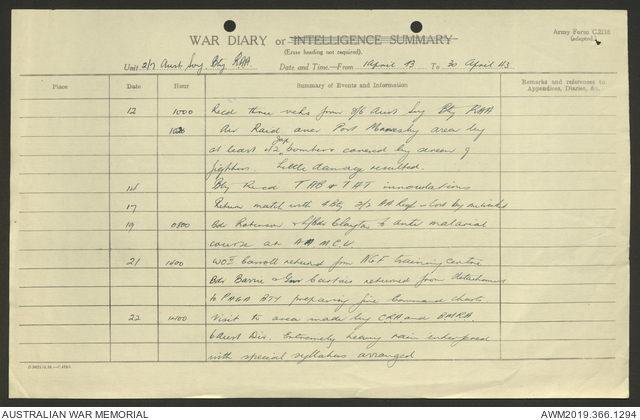 Army Form C.2118
(adapted.)
WAR DIARY or INTELLIGENCE SUMMARY
(Erase heading not required).
Unit 2/7 Aust Svy. Bty RAA Date and Time—From 1 April 43 To 30 April 43
Place Date Hour Summary of Events and Information Remarks and references to
Appendices, Diaries, &c.
12 1000 Recd three vehs from 2/6 Aust Svy Bty RAA
Air Raid over Port Moresby area by
at least 42 Jap bombers covered by screen of
fighters. Little damage resulted.
14 Bty Recd TAB & TAT innoculations
17 Return match with 4 Bty 2/2 AA Regt – lost by
19 0800 Bdr Robinson & L/Bdr Clayton to anti malarial
course at
21 1400 WO II Carroll returned from NGF training centre
Bdr Barrie & Gnr returned from detachment
to PAGA BTY preparing fire command charts
22 1400 Visit to area made by CRA and BMRA
6 Aust Div. Extremely heavy rain interfered
with special syllabus arranged
AUSTRALIAN WAR MEMORIAL
AWM2019.366.1294